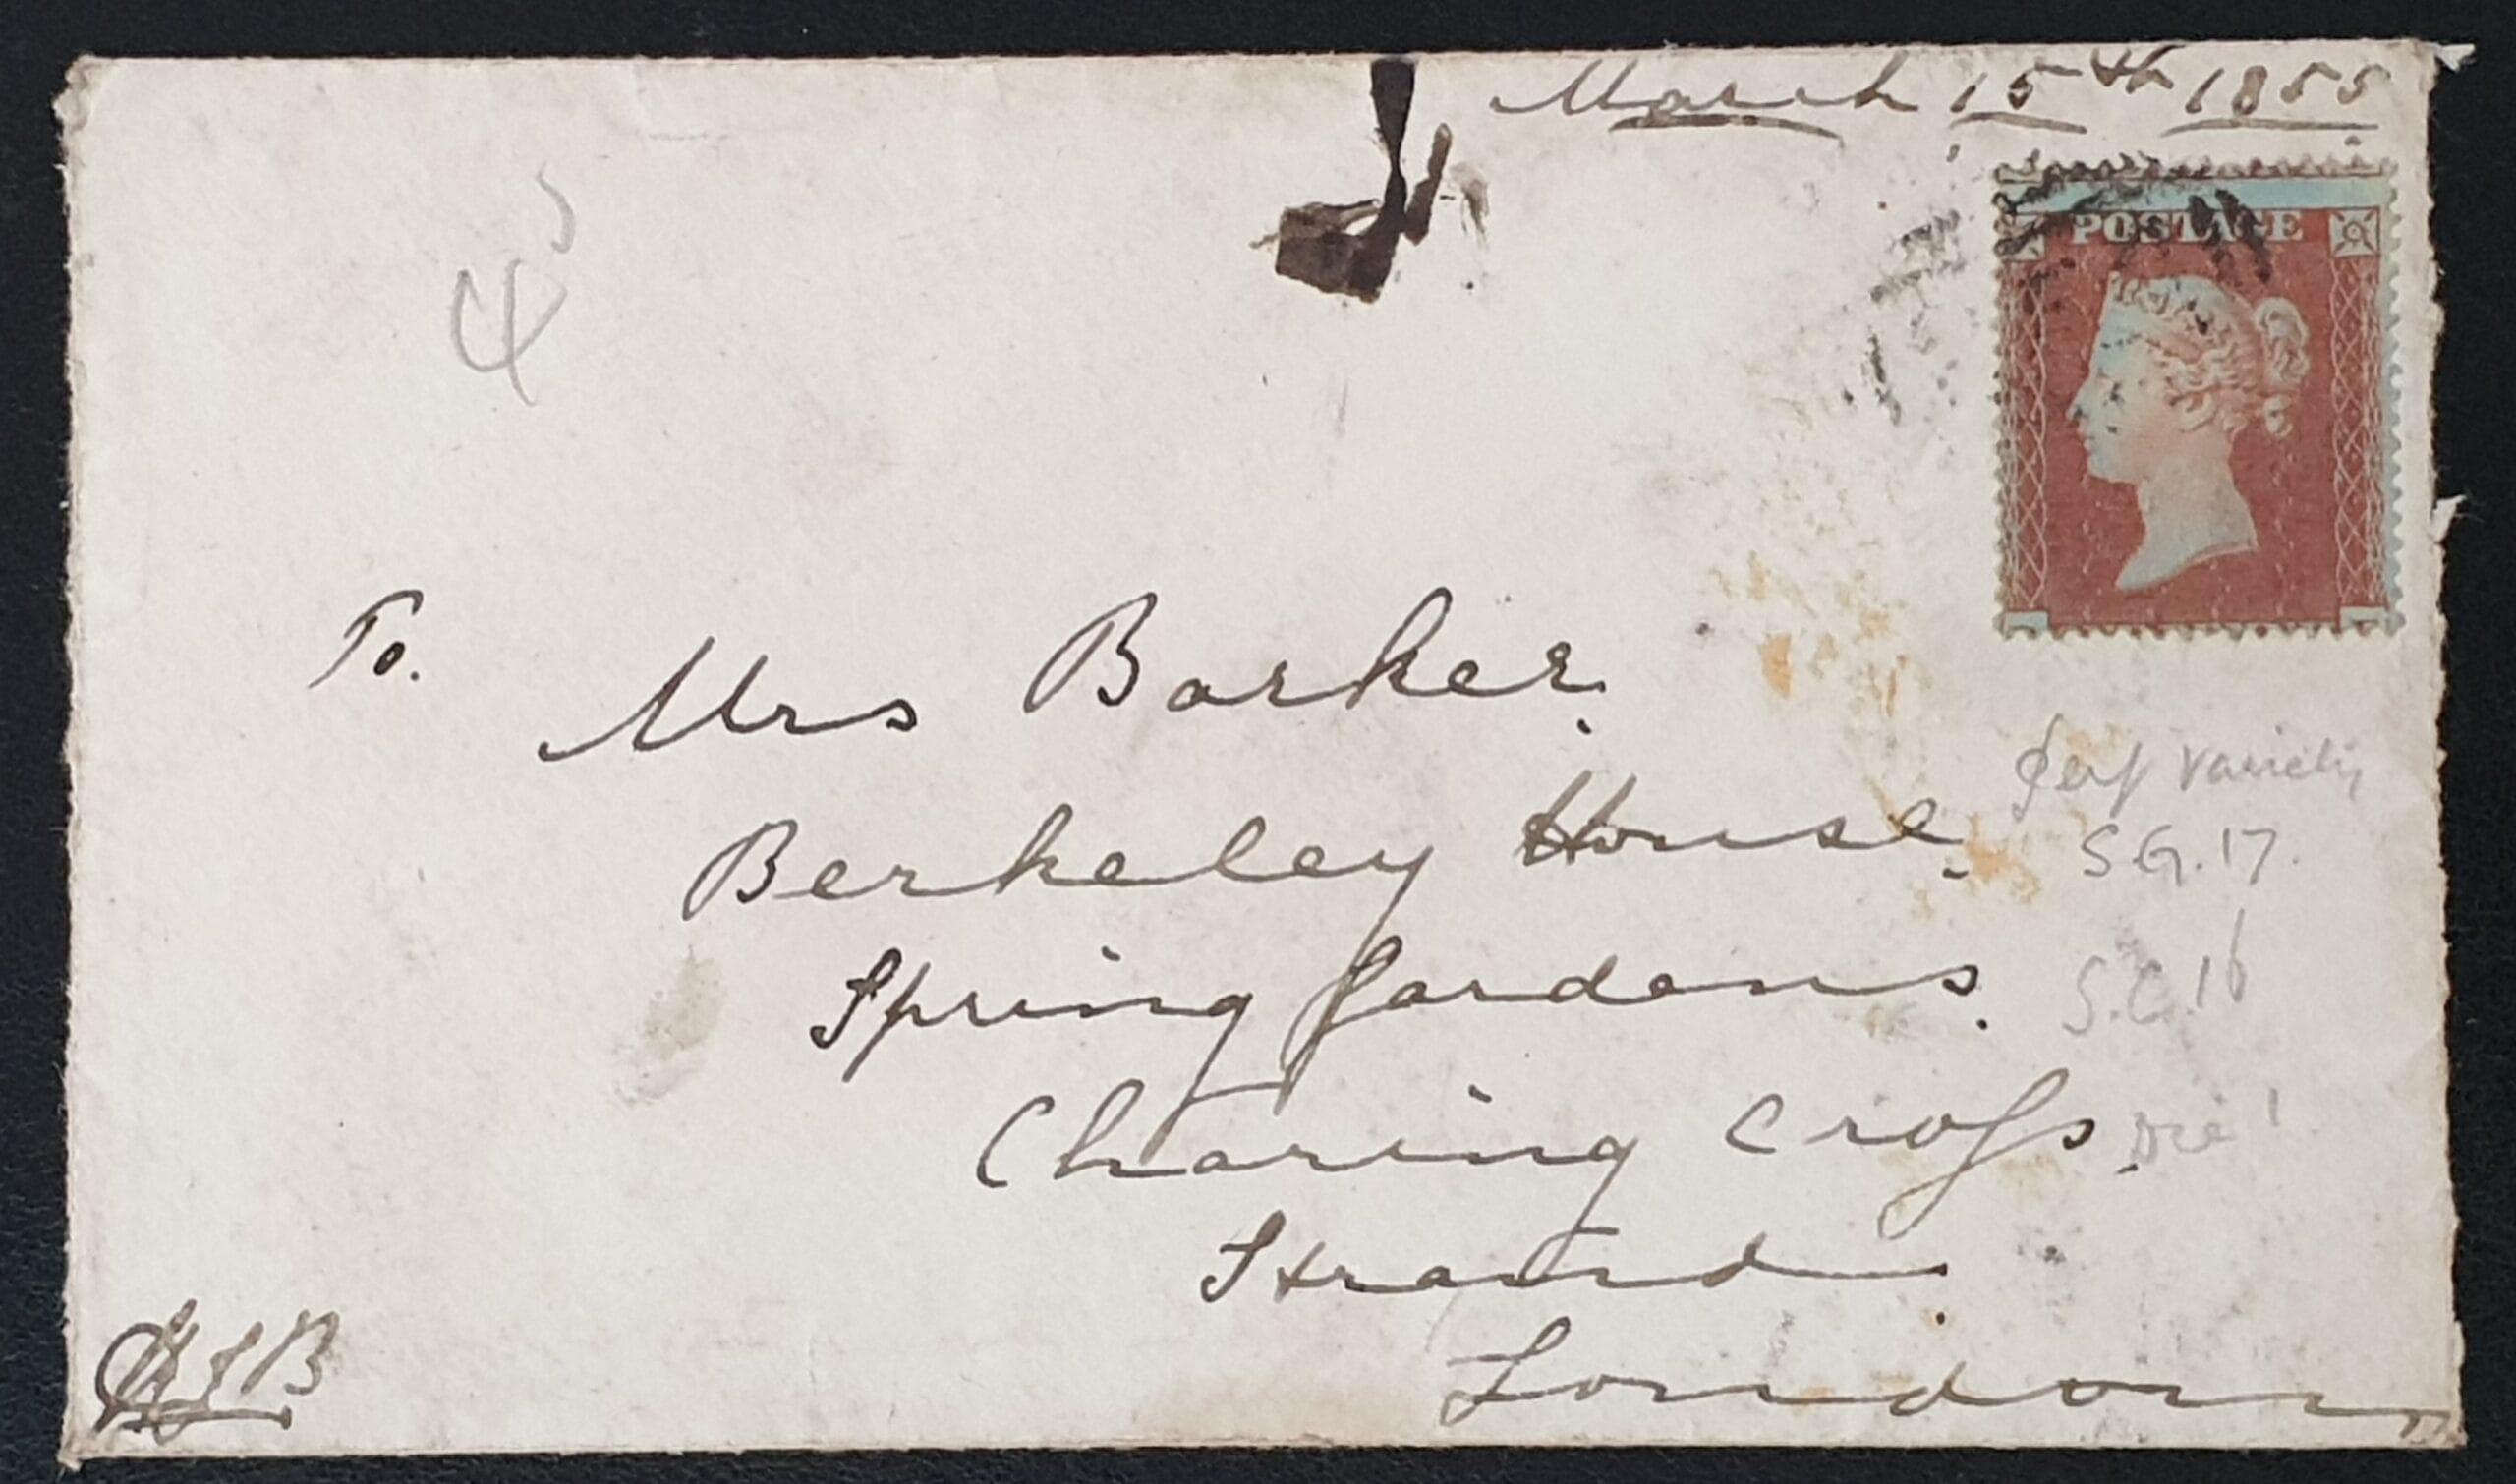 March 15th 1855
POSTAGE
4
To.
Mrs Barker.
Berkeley House.
Spring Gardens.
Charing Cross.
Strand.
London
perf variety
S.G.17.
S.G.16
Die 1